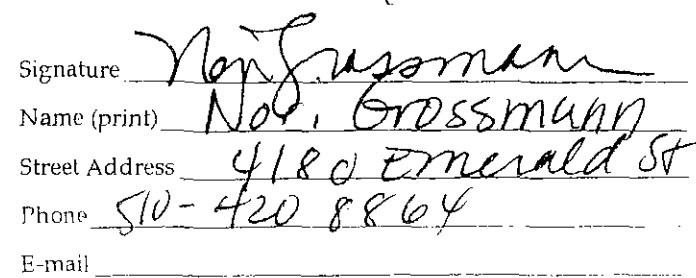 Signature Grossmann
Name (print) Grossmann
Street Address 4180 Emerald St
Phone 510-420 8864
E-mail